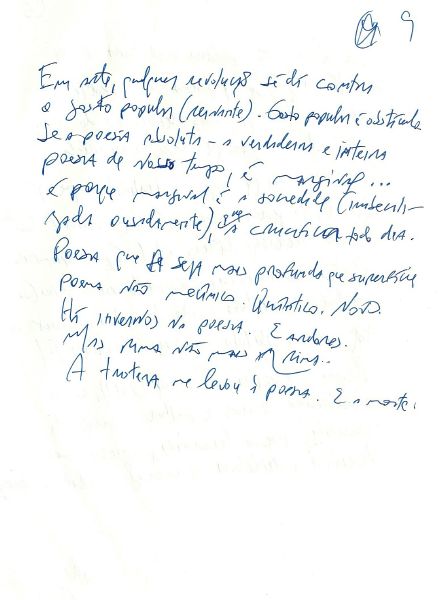 9
Em arte, qualquer revolução se dá contra
o gosto popular (reinante). Gosto popular é obstáculo
Se a poesia absoluta - a verdadeira e inteira
poesia de nosso tempo, é marginal...
é porque marginal é a sociedade (imbecili-
zada ousadamente), que a crucifica todo dia.
Poesia que seja mais profunda que superfície
poema não mecânico. Quântico. Novo.
Há invernos na poesia. E andores.
Mas uma não mais
A me levou à poesia. E a morte.